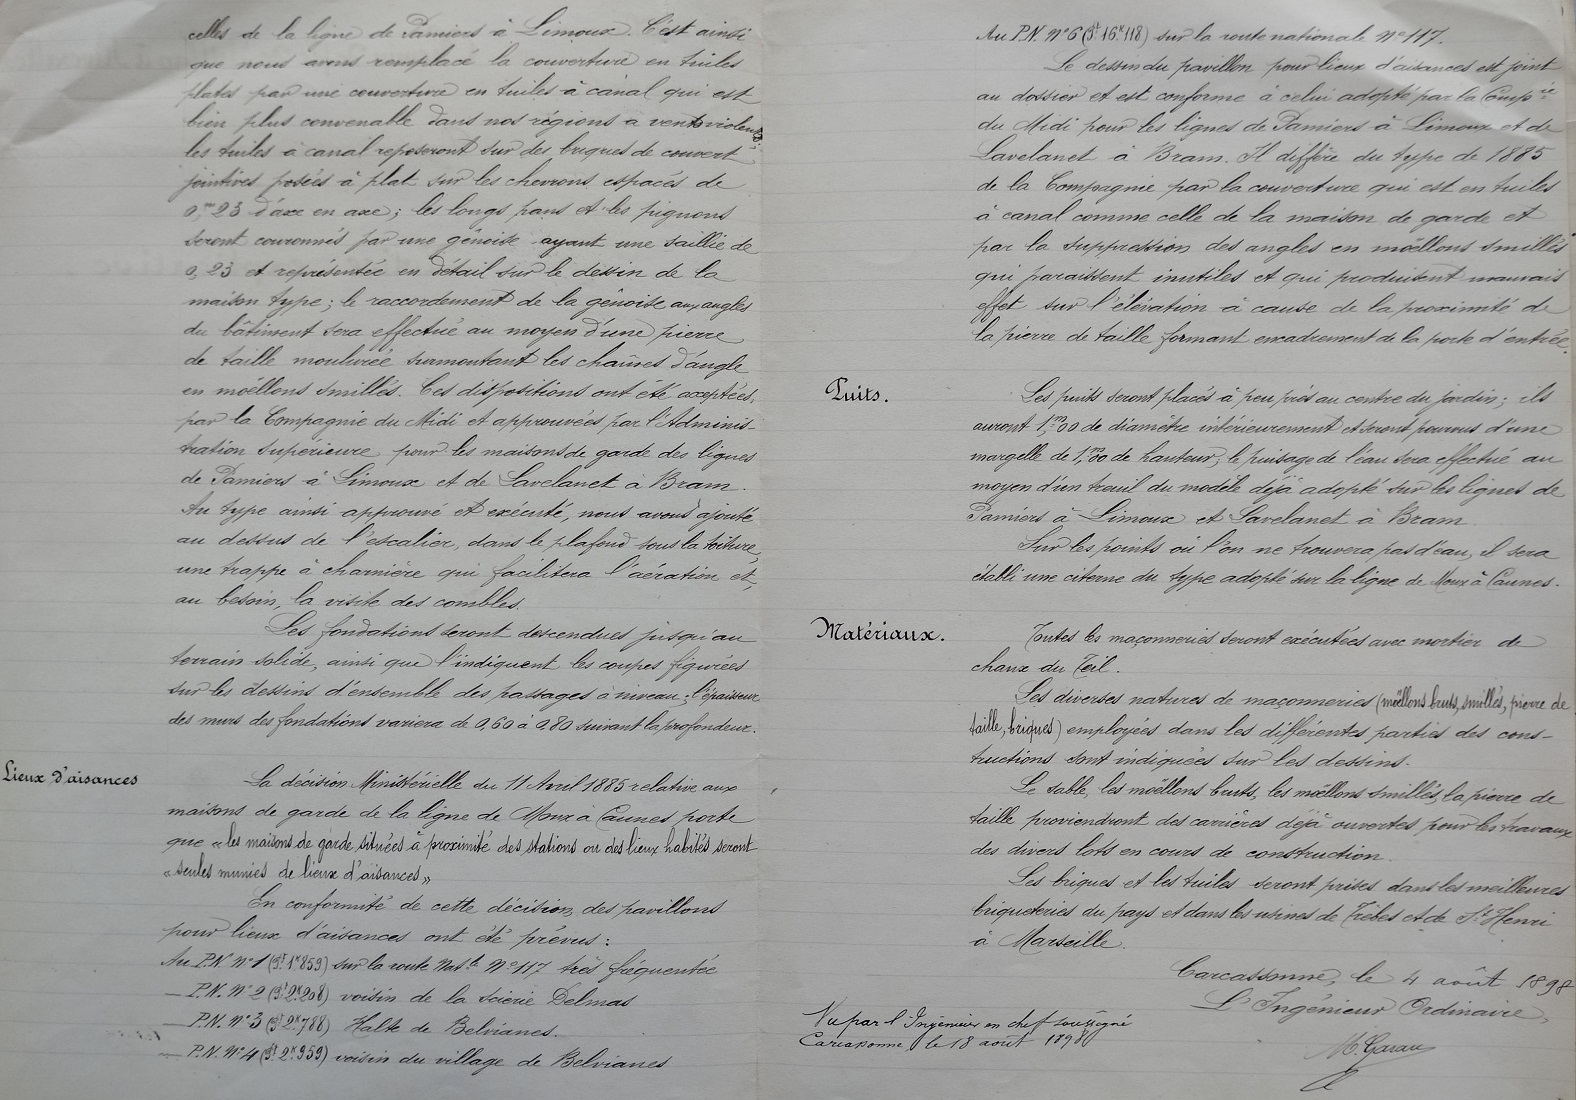 celles de la ligne de Pamiers à Limoux. C'est ainsi
que nous avons remplacé la couverture en tuiles
plates par une couverture en tuiles à canal qui est
bien plus convenable dans nos régions à vents violents;
les tuiles à canal reposeront sur des briques de couvert
jointives posées à plat sur les chevrons espacés de
0,m23 d'axe en axe; les longs pans et les pignons
seront couronnés par une génoise ayant une saillie de
0,23 et représentée en détail sur le dessin de la
maison type; le raccordement de la génoise aux angles
du bâtiment sera effectué au moyen d'une pierre
de taille moulurée surmontant les chaînes d'angle
en moëllons smillés. Ces dispositions ont été acceptées,
par la Compagnie du Midi et approuvées par l'Adminis-
tration supérieure pour les maisons de garde des lignes
de Pamiers à Limoux et de Lavelanet à Bram.
Au type ainsi approuvé et exécuté, nous avons ajouté
au dessus de l'escalier, dans le plafond sous la toiture,
une trappe à charnière qui facilitera l'aération et,
au besoin, la visite des combles.
Les fondations seront descendues jusqu'au
terrain solide, ainsi que l'indiquent les coupes figurées
sur les dessins d'ensemble des passages à niveau; l'épaisseur
des murs des fondations variera de 0,60 à 0,80 suivant la profondeur.
Lieux d'aisances
La décision Ministérielle du 11 Avril 1885 relative aux
maisons de garde de la ligne de Moux à Caunes porte
que « les maisons de garde situées à proximité des stations ou des lieux habités seront
« seules munies de lieux d'aisances »
En conformité de cette décision, des pavillons
pour lieux d'aisances ont été prévus:
Au P.N. N°1 (Pt 1K859) sur la route Nat.le N°117 très fréquentée
— P.N. N°2 (Pt 2K208) voisin de la Scierie Delmas
— P.N. N°3 (Pt 2K788) Halte de Belvianes.
— P.N. N°4 (Pt 2K959) voisin du village de Belvianes
Au P.N. N°6 (Pt 16K118) sur la route nationale N°117.
Le dessin du pavillon pour lieux d'aisances est joint
au dossier et est conforme à celui adopté par la Comp.ie
du Midi pour les lignes de Pamiers à Limoux et de
Lavelanet à Bram. Il diffère du type de 1885
de la Compagnie par la couverture qui est en tuiles
à canal comme celle de la maison de garde et
par la suppression des angles en moëllons smillés
qui paraissent inutiles et qui produisent mauvais
effet sur l'élévation à cause de la proximité de
la pierre de taille formant encadrement de la porte d'entrée.
Puits.
Les puits seront placés à peu près au centre du jardin; ils
auront 1,m00 de diamètre intérieurement et seront pourvus d'une
margelle de 1,m00 de hauteur; le puisage de l'eau sera effectué au
moyen d'un treuil du modèle déjà adopté sur les lignes de
Pamiers à Limoux et Lavelanet à Bram.
Sur les points où l'on ne trouvera pas d'eau, il sera
établi une citerne du type adopté sur la ligne de Moux à Caunes.
Matériaux.
Toutes les maçonneries seront exécutées avec mortier de
chaux du Teil.
Les diverses natures de maçonneries (moëllons bruts, smillés, pierre de
taille, briques) employées dans les différentes parties des cons-
tructions sont indiquées sur les dessins.
Le sable, les moëllons bruts, les moëllons smillés, la pierre de
taille proviendront des carrières déjà ouvertes pour les travaux
des divers lots en cours de construction.
Les briques et les tuiles seront prises dans les meilleures
briqueteries du pays et dans les usines de Trèbes et de St Henri
à Marseille.
Carcassonne, le 4 août 1898
L'Ingénieur Ordinaire,
Vu par l'Ingénieur en chef soussigné
Carcassonne, le 18 août 1898